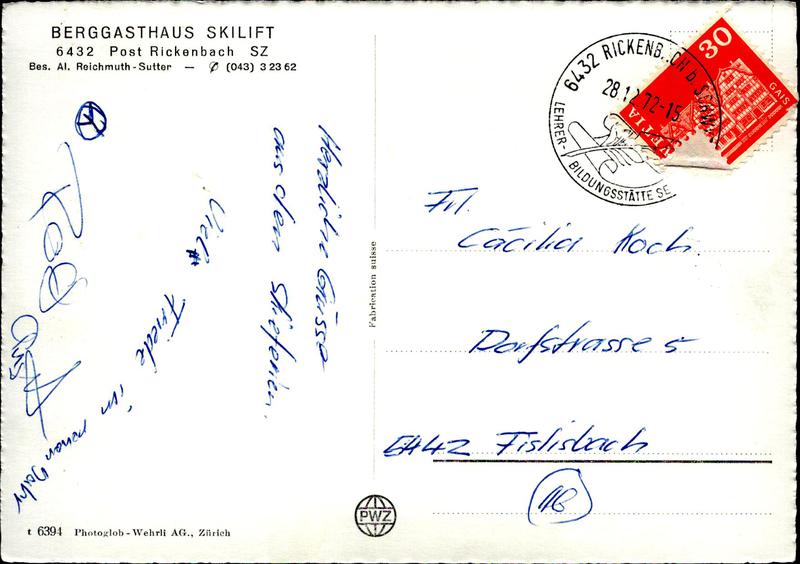 BERGGASTHAUS SKILIFT
6432 Post Rickenbach SZ
Bes. Al. Reichmuth-Sutter — ✆ (043) 3 23 62
Herzliche Grüsse
aus den Skiferien.
Viel Friede im neuen Jahr
Fabrication suisse
6432 RICKENB.CH b. SCHWYZ
28.12.72-15
LEHRER-BILDUNGSSTÄTTE SE
30
HELVETIA
GAIS
Frl.
Cäcilia Koch.
Dorfstrasse 5
5442 Fislisbach
AG
PWZ
t 6394 Photoglob-Wehrli AG., Zürich